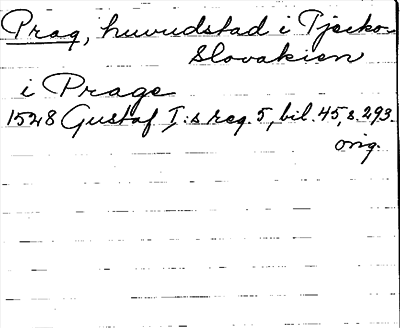 Prag, huvudstad i Tjecko-
Slovakien
i Prage
1528 Gustaf I:s reg. 5, bil. 45, s. 293.
orig.